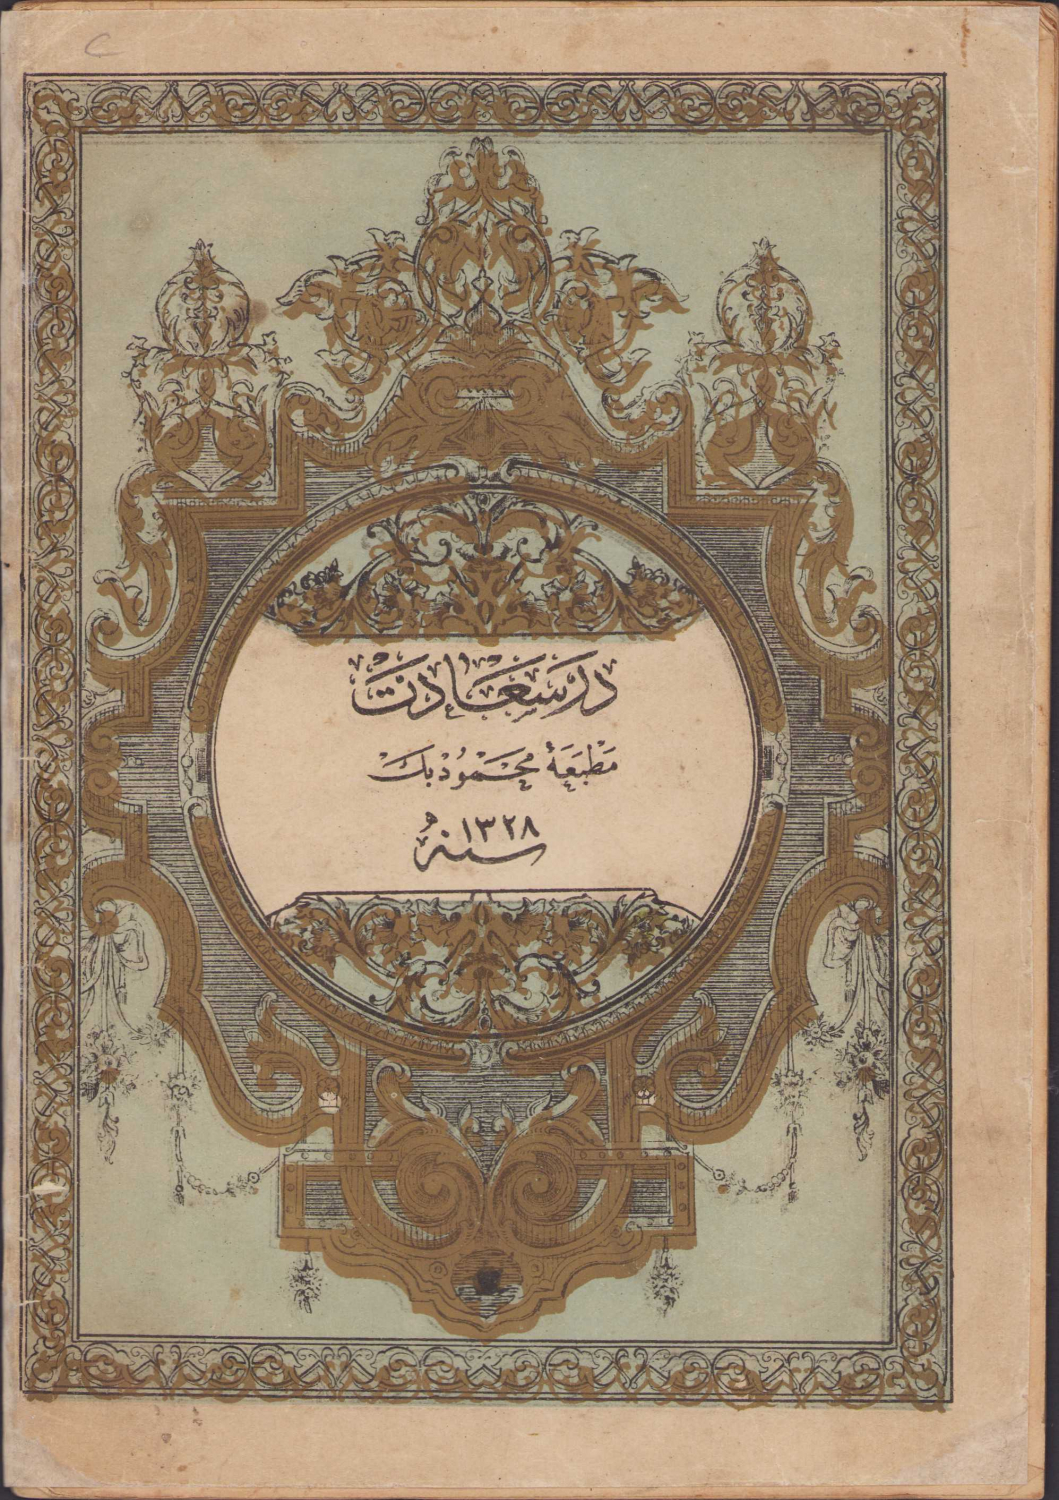 در سعادت
مطبعهٔ محمود بك
سنه ١٣٢٨